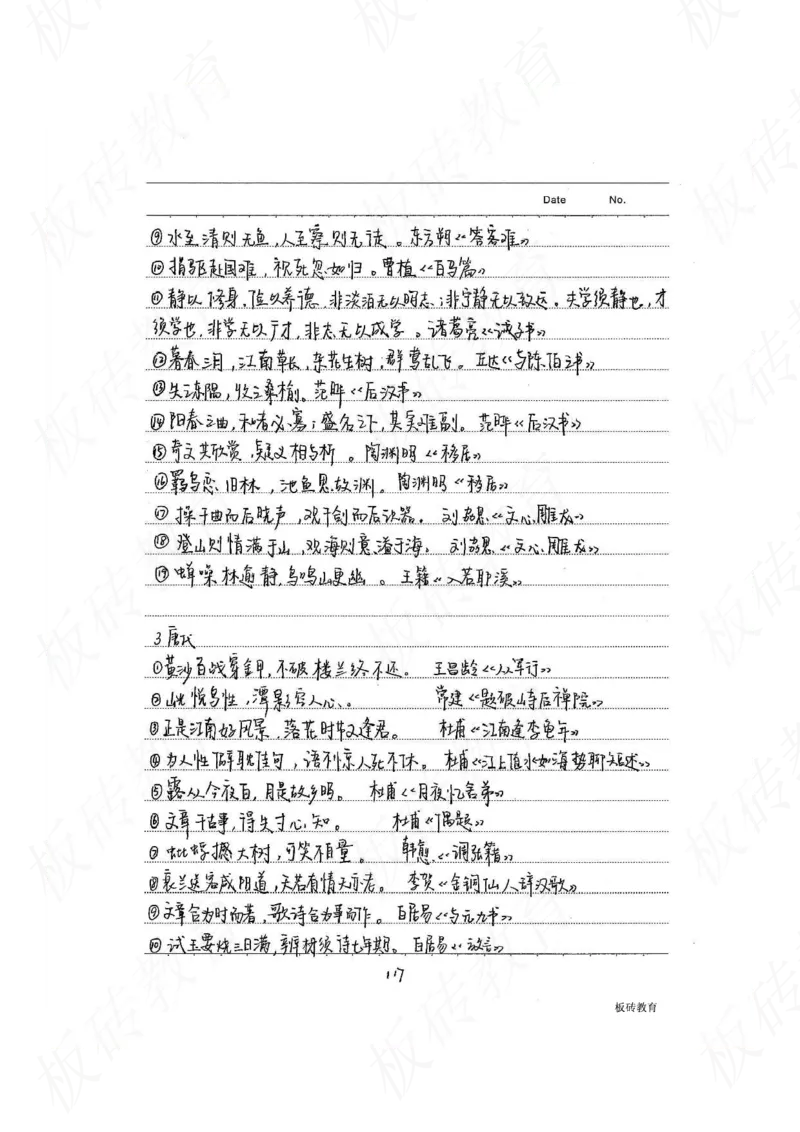 Date No.
⑨水至清则无鱼,人至察则无徒。东方朔《答客难》
⑩捐躯赴国难,视死忽如归。曹植《白马篇》
⑪静以修身,俭以养德,非淡泊无以明志;非宁静无以致远。夫学须静也,才
须学也,非学无以广才,非志无以成学。诸葛亮《诫子书》
⑫暮春三月,江南草长,杂花生树,群莺乱飞。丘迟《与陈伯之书》
⑬失之东隅,收之桑榆。范晔《后汉书》
⑭阳春之曲,和者必寡;盛名之下,其实难副。范晔《后汉书》
⑮奇文共欣赏,疑义相与析。陶渊明《移居》
⑯羁鸟恋旧林,池鱼思故渊。陶渊明《移居》
⑰操千曲而后晓声,观千剑而后识器。刘勰《文心雕龙》
⑱登山则情满于山,观海则意溢于海。刘勰《文心雕龙》
⑲蝉噪林逾静,鸟鸣山更幽。王籍《入若耶溪》
3唐代
①黄沙百战穿金甲,不破楼兰终不还。王昌龄《从军行》
②山光悦鸟性,潭影空人心。常建《题破山寺后禅院》
③正是江南好风景,落花时节又逢君。杜甫《江南逢李龟年》
④为人性僻耽佳句,语不惊人死不休。杜甫《江上值水如海势聊短述》
⑤露从今夜白,月是故乡明。杜甫《月夜忆舍弟》
⑥文章千古事,得失寸心知。杜甫《偶题》
⑦蚍蜉撼大树,可笑不自量。韩愈《调张籍》
⑧衰兰送客咸阳道,天若有情天亦老。李贺《金铜仙人辞汉歌》
⑨文章合为时而著,歌诗合为事而作。白居易《与元九书》
⑩试玉要烧三日满,辨材须待七年期。白居易《放言》
117
板砖教育